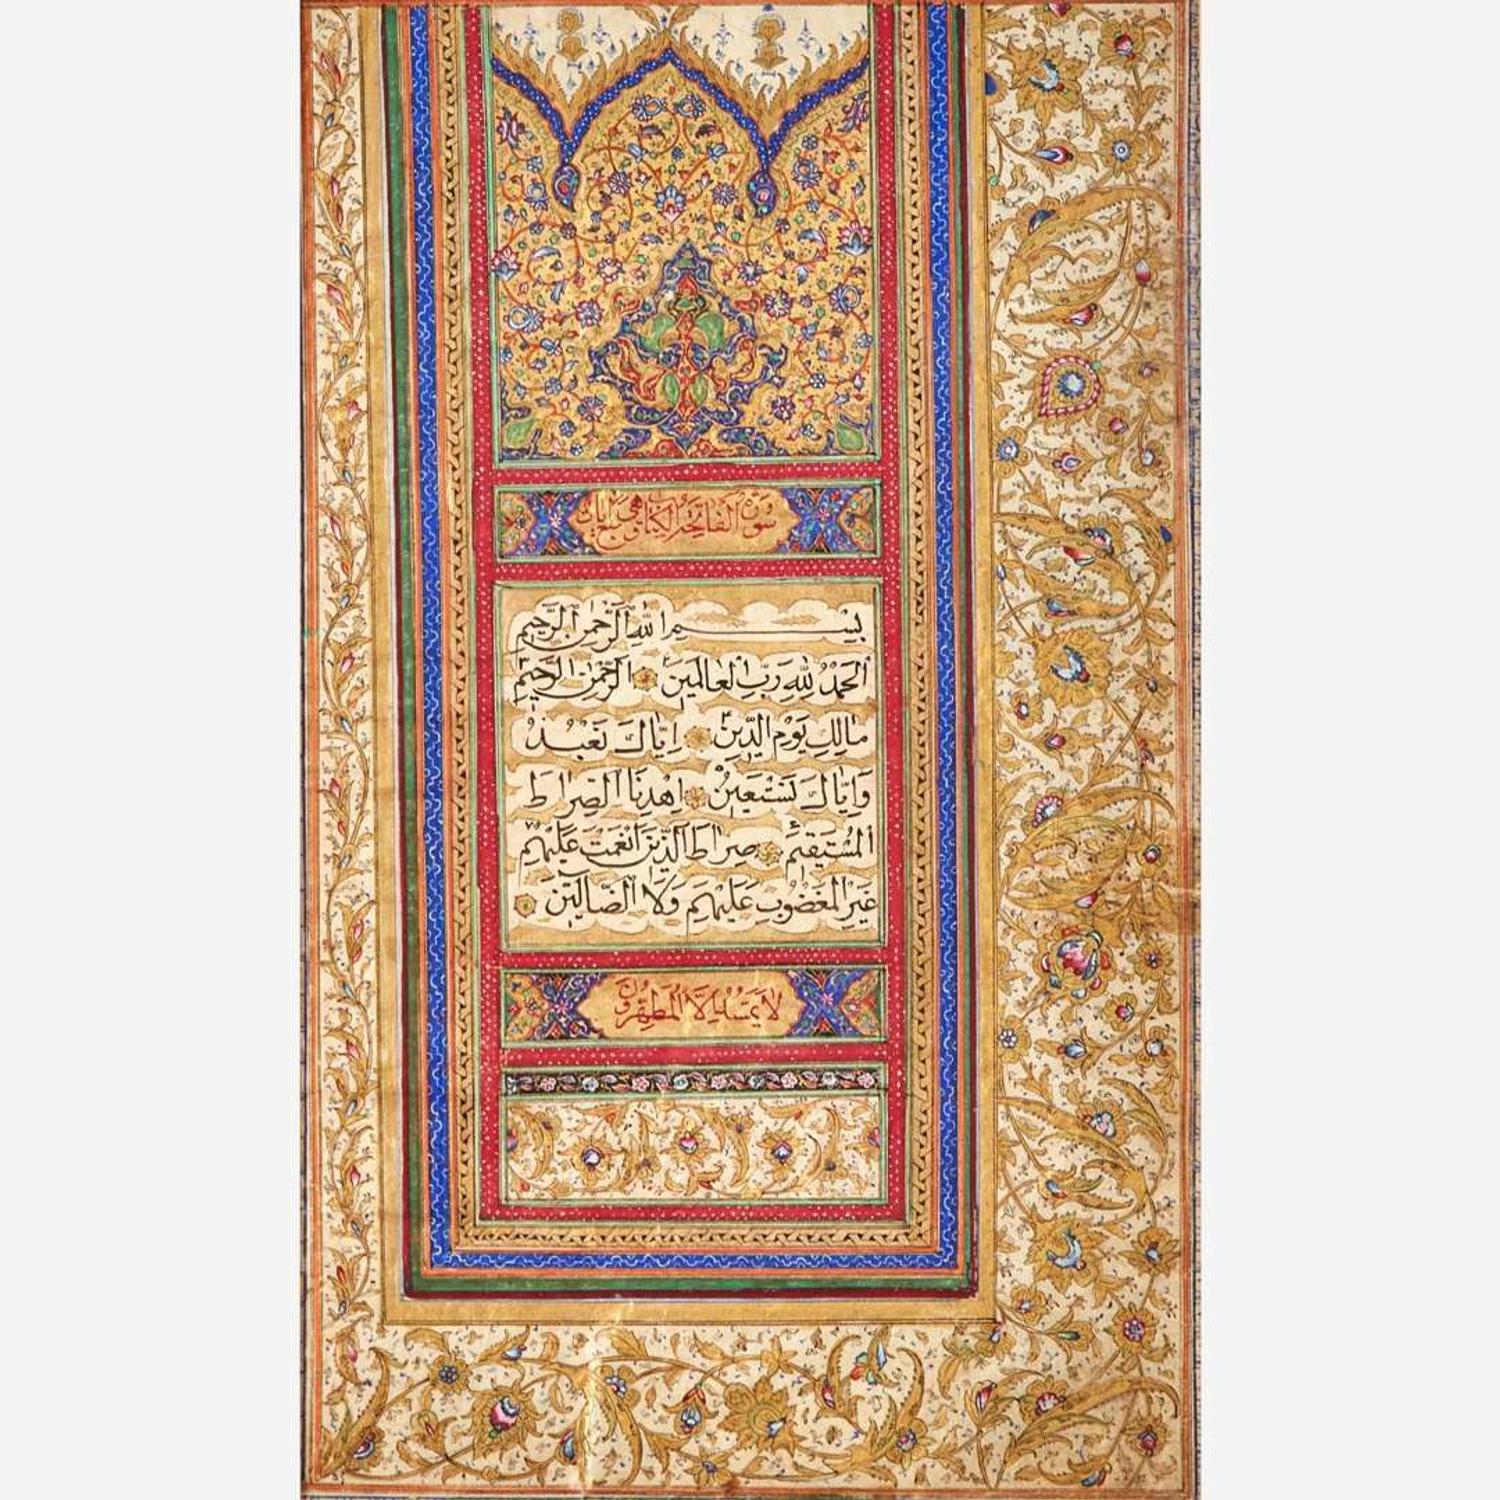 سورة الفاتحة الكتاب وهي سبع آيات
بِسْمِ اللهِ الرَّحْمٰنِ الرَّحِيمِ
اَلْحَمْدُ لِلّٰهِ رَبِّ الْعَالَمِينَ الرَّحْمٰنِ الرَّحِيمِ
مَالِكِ يَوْمِ الدِّينِ اِيَّاكَ نَعْبُدُ
وَاِيَّاكَ نَسْتَعِينُ اِهْدِنَا الصِّرَاطَ
الْمُسْتَقِيمَ صِرَاطَ الَّذِينَ اَنْعَمْتَ عَلَيْهِمْ
غَيْرِ الْمَغْضُوبِ عَلَيْهِمْ وَلَا الضَّالِّينَ
لا يمسه الا المطهرون